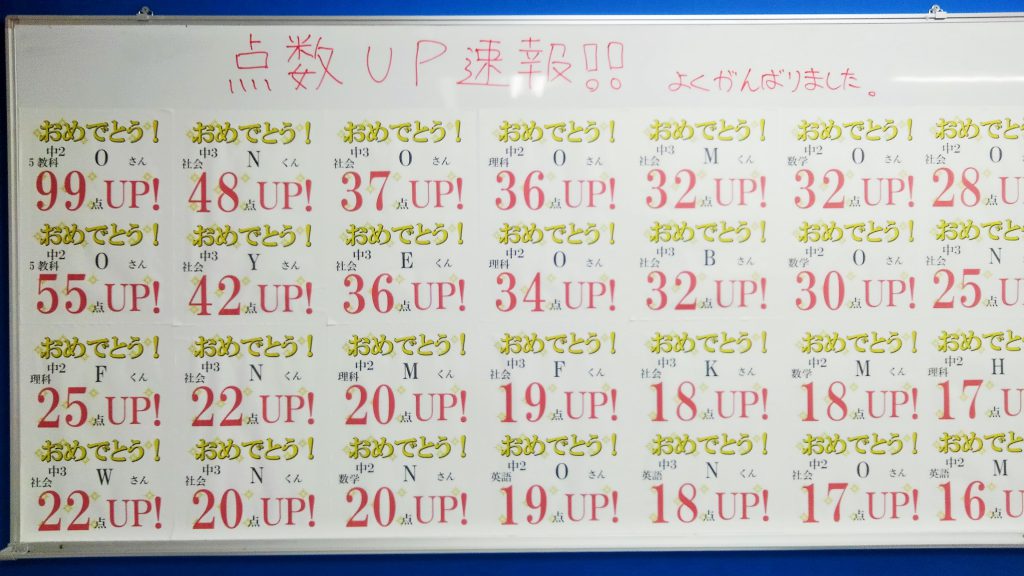 点数UP速報!! よくがんばりました。
おめでとう! おめでとう! おめでとう! おめでとう! おめでとう! おめでとう! おめでと
中2 5教科 O さん 中3 社会 N くん 中3 社会 O さん 中2 理科 O さん 中3 社会 M くん 中2 数学 O さん 中2 社会 O
99点UP! 48点UP! 37点UP! 36点UP! 32点UP! 32点UP! 28点U
おめでとう! おめでとう! おめでとう! おめでとう! おめでとう! おめでとう! おめでと
中2 5教科 O さん 中3 社会 Y さん 中3 社会 E くん 中2 理科 O さん 中3 社会 B さん 中2 数学 O さん 中3 社会 N
55点UP! 42点UP! 36点UP! 34点UP! 32点UP! 30点UP! 25点U
おめでとう! おめでとう! おめでとう! おめでとう! おめでとう! おめでとう! おめでと
中2 理科 F くん 中3 社会 N くん 中2 理科 M くん 中3 社会 F くん 中3 社会 K さん 中2 数学 M くん 中2 理科 H
25点UP! 22点UP! 20点UP! 19点UP! 18点UP! 18点UP! 17点U
おめでとう! おめでとう! おめでとう! おめでとう! おめでとう! おめでとう! おめでと
中3 社会 W さん 中3 社会 N くん 中2 数学 N さん 中2 英語 O さん 中3 英語 N くん 中2 社会 O さん 中2 英語 M
22点UP! 20点UP! 20点UP! 19点UP! 18点UP! 17点UP! 16点U